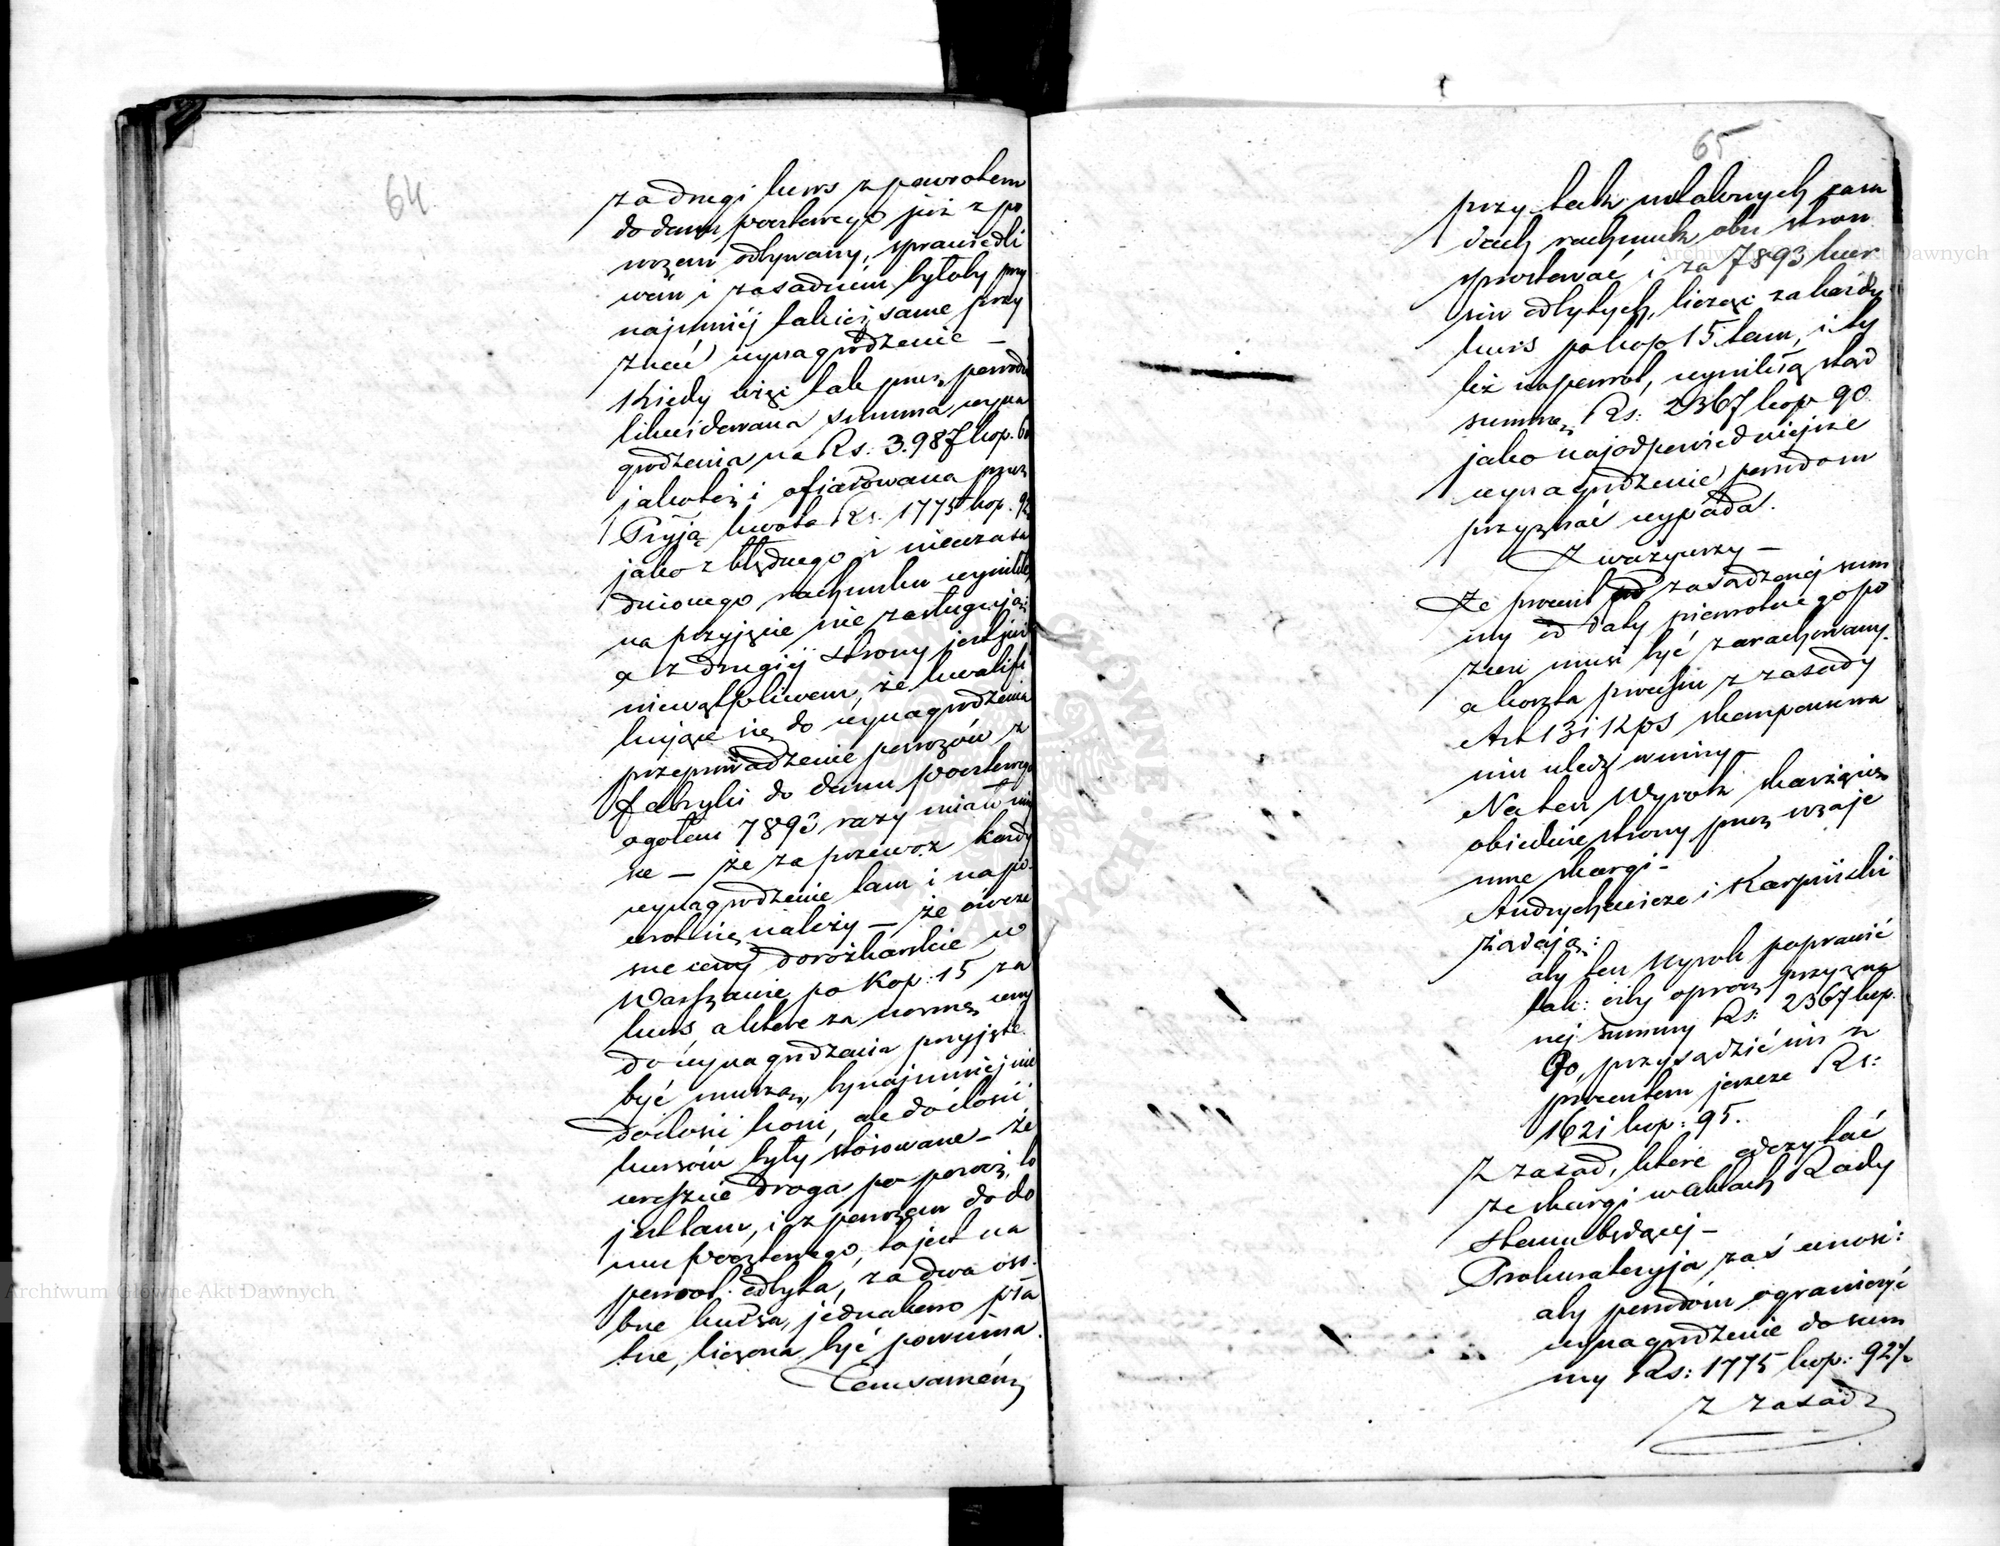 64
za drugi kurs z powrotem
do domu pocztowego już z po
wozem odbywany, sprawiedli
wém i zasadném byłoby przy
najmniéj takież same przy
znać wynagrodzenie —
Kiedy więc tak przez powodów
likwidowana summa wyna
grodzenia na Rs: 3.987 kop. 60
jakoteż i ofiarowana przez
kwota Rs. 1775 kop. 92
jako z błędnego i nieuzasa
dnionego rachunku wynikłe,
na przyjęcie nie zasługują;
a z drugiéj strony jest już
niewątpliwem, że kwalifi
kujące się do wynagrodzenia
przeprowadzenie powozów z
fabryki do domu pocztowego
ogółem 7893 razy miało miej
sce — że za przewóz każdy
wynagrodzenie tam i napo-
wrot się należy — że ówcze
sne ceny dorożkarskie w
Warszawie po kop: 15 za
kurs a które za normę ceny
do wynagrodzenia przyjęte
być muszą, bynajmniéj nie
do ilości koni, ale do ilości
kursów były stósowane — że
wreszcie droga po powóz, to
jest tam, i z powozem do do
mu pocztowego, to jest na
powrot odbyta, za dwa oso-
bne kursa, jednakowo pła
tne, liczona być powinna.
Temsamém,
65
przy tak ustalonych zasa
dach rachunek obu stron
sprostować i za 7893 kur
sów odbytych, licząc za każdy
kurs po kop 15 tam, i ty
leż napowrót, wynikłą stąd
summę Rs: 2367 kop 90
jako najodpowiedniejsze
wynagrodzenie powodom
przyznać wypada.
Zważywszy —
Że procent od zasądzonéj sum
my od daty pierwotnego po
zwu musi być zarachowany
a koszta processu z zasady
Art 131 KPS skompensowa
niu uledz winny —
Na ten Wyrok skarżą się
obiedwie strony przez wzaje
mne skargi —
Andrychewicze i Karpiński
żądają:
aby ten Wyrok poprawić
tak: iżby oprócz przyzna
nej summy Rs: 2367 kop.
90, przysądzić im z
procentem jeszcze Rs:
1621 kop: 95.
Z zasad, które odczytać
ze skargi w aktach Rady
Stanu będącéj —
Prokuratoryja zaś wnosi:
aby powodom ograniczyć
wynagrodzenie do sum
my Rs: 1775 kop: 92½
Z zasad
Archiwum Główne Akt Dawnych